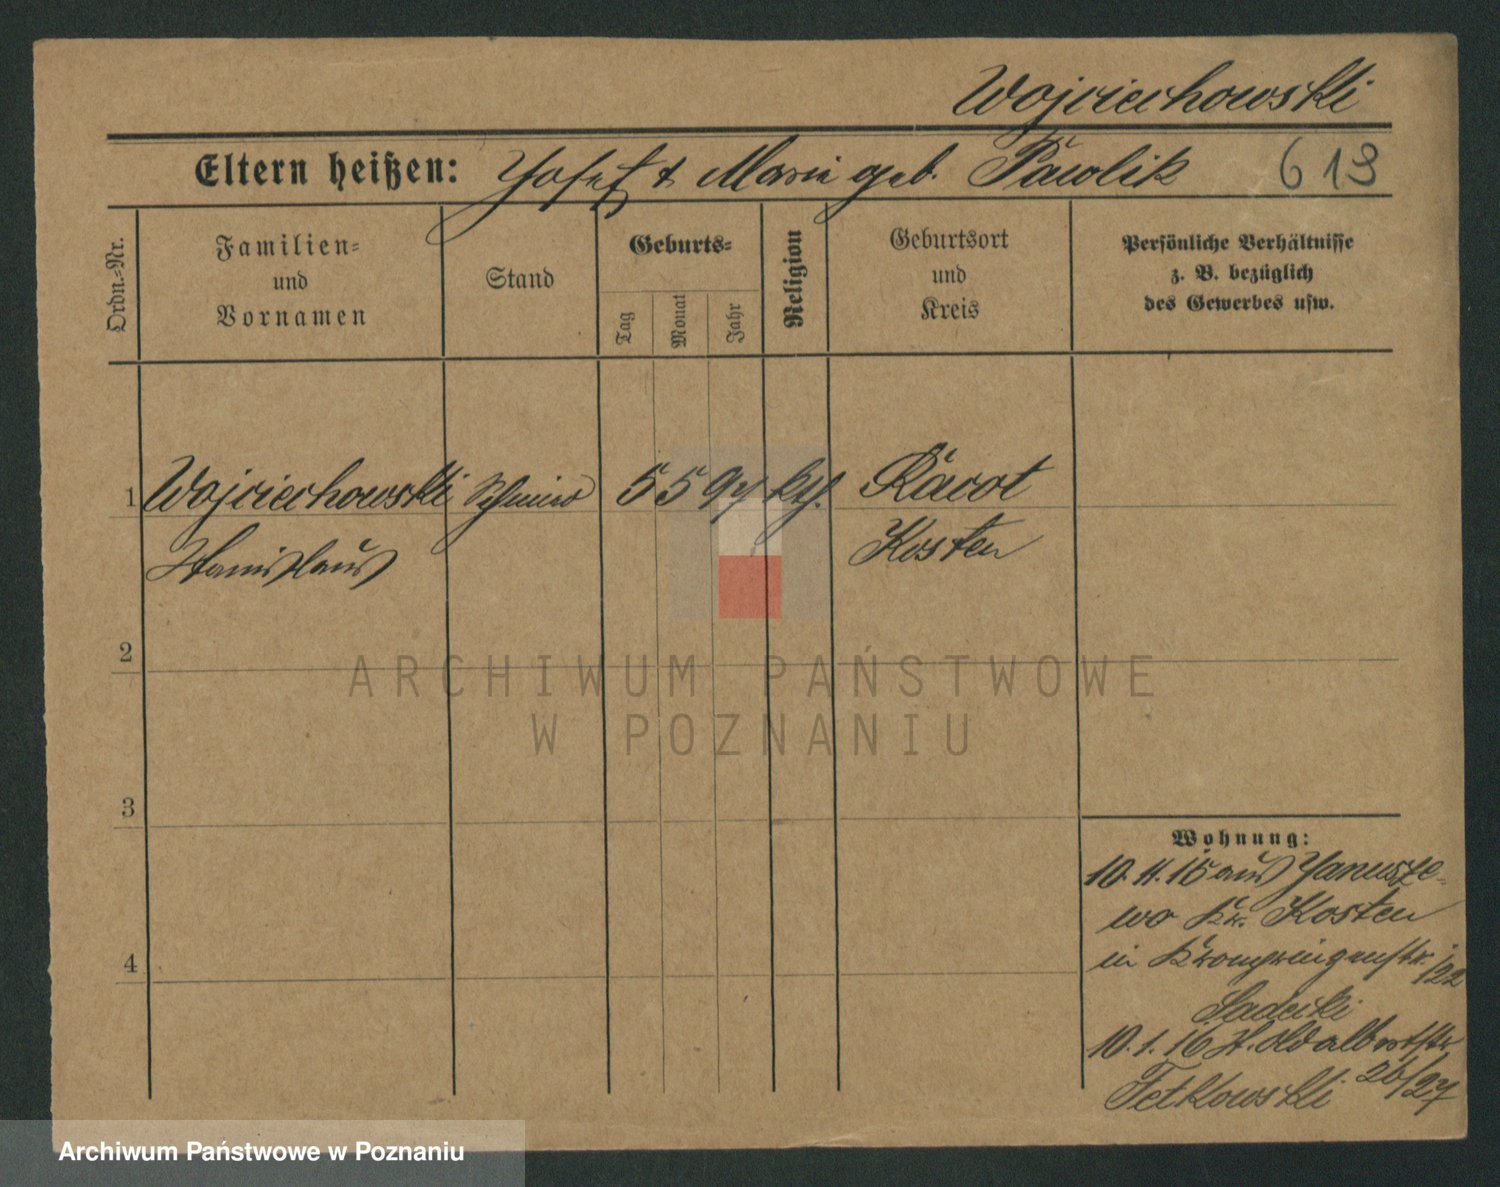 Wojciechowski
Eltern heißen: Josef & Marie geb. Pawlik 613
Ordn.-Nr.
Familien-
und
Vornamen
Stand
Geburts-
Tag
Monat
Jahr
Religion
Geburtsort
und
Kreis
Persönliche Verhältnisse
z. B. bezüglich
des Gewerbes usw.
1 Wojciechowski Schmied 5 5 97 kth. Racot
Stanislaus Kosten
2
3
4
Wohnung:
10.11.15 aus Janusze-
wo Kr. Kosten
in Kronprinzenstr.
122
Sadecki
10.1.16
26/27
Fetkowski
ARCHIWUM PAŃSTWOWE
W POZNANIU
Archiwum Państwowe w Poznaniu